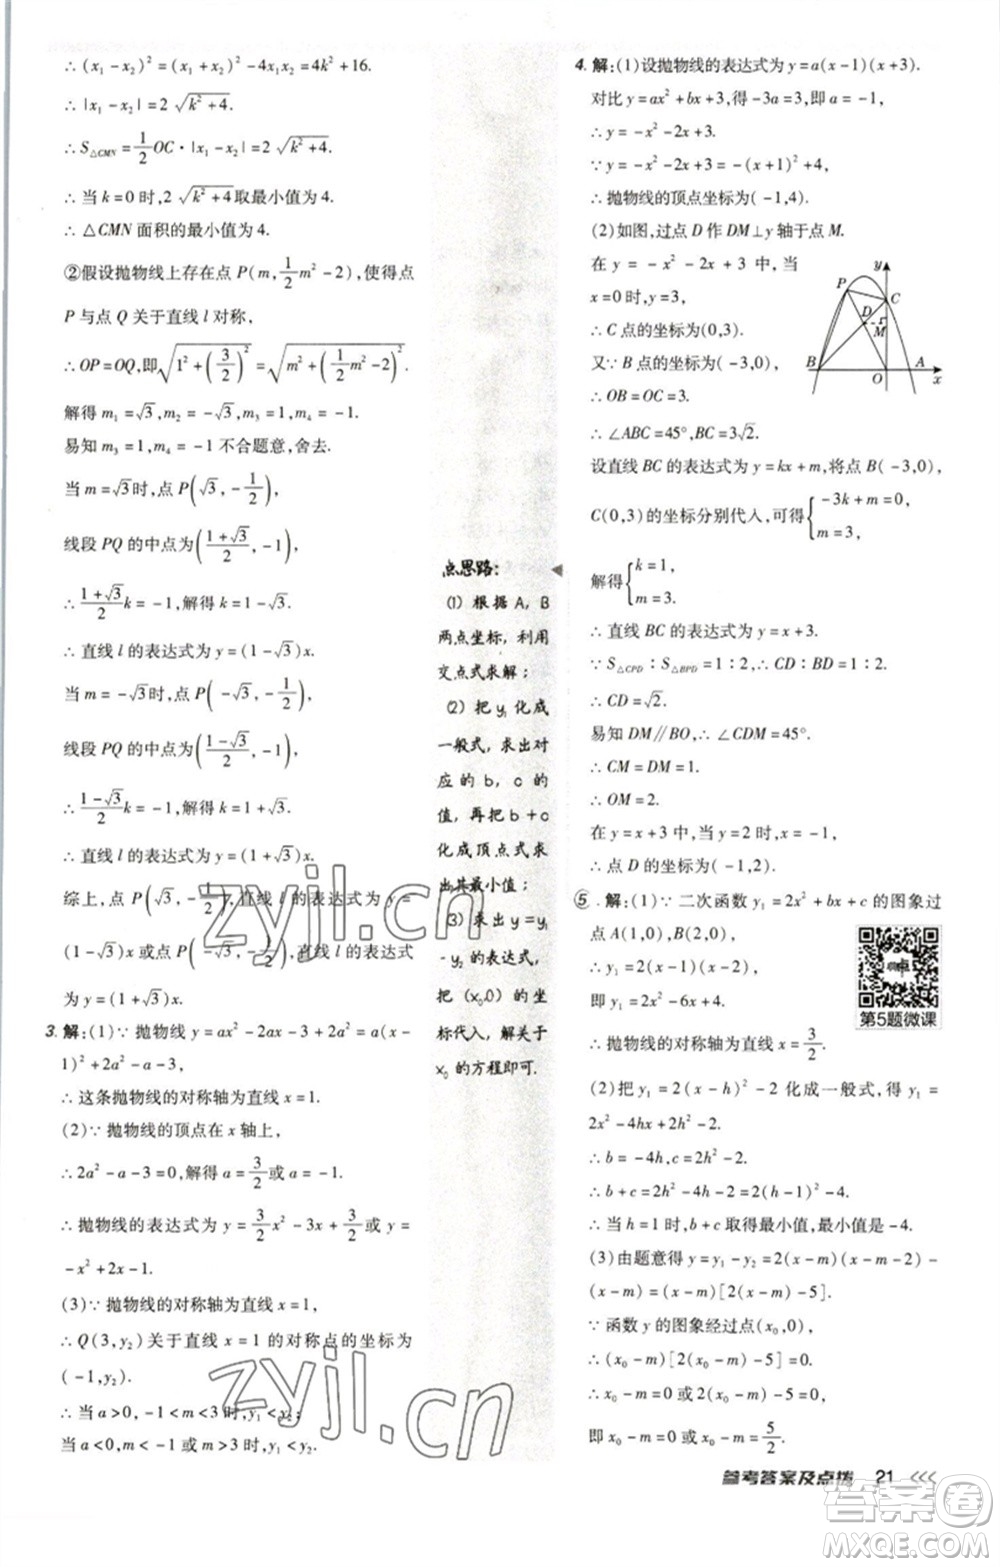 ∴ (x₁-x₂)²=(x₁+x₂)²-4x₁x₂=4k²+16.
∴ |x₁-x₂|=2√(k²+4).
∴ S△CMN=1/2 OC·|x₁-x₂|=2√(k²+4).
∴ 当 k=0 时,2√(k²+4)取最小值为 4.
∴ △CMN 面积的最小值为 4.
②假设抛物线上存在点 P(m,1/2m²-2),使得点
P 与点 Q 关于直线 l 对称,
∴ OP=OQ,即√(1²+(3/2)²)=√(m²+(1/2m²-2)²).
解得 m₁=√3,m₂=-√3,m₃=1,m₄=-1.
易知 m₃=1,m₄=-1 不合题意,舍去.
当 m=√3时,点 P(√3,-1/2),
线段 PQ 的中点为((1+√3)/2,-1),
∴ (1+√3)/2 k=-1,解得 k=1-√3.
∴ 直线 l 的表达式为 y=(1-√3)x.
当 m=-√3时,点 P(-√3,-1/2),
线段 PQ 的中点为((1-√3)/2,-1),
∴ (1-√3)/2 k=-1,解得 k=1+√3.
∴ 直线 l 的表达式为 y=(1+√3)x.
综上,点 P(√3,-1/2),直线 l 的表达式为 y=
(1-√3)x 或点 P(-√3,-1/2),直线 l 的表达式
为 y=(1+√3)x.
3. 解:(1)∵ 抛物线 y=ax²-2ax-3+2a²=a(x-
1)²+2a²-a-3,
∴ 这条抛物线的对称轴为直线 x=1.
(2)∵ 抛物线的顶点在 x 轴上,
∴ 2a²-a-3=0,解得 a=3/2或 a=-1.
∴ 抛物线的表达式为 y=3/2x²-3x+3/2或 y=
-x²+2x-1.
(3)∵ 抛物线的对称轴为直线 x=1,
∴ Q(3,y₂)关于直线 x=1 的对称点的坐标为
(-1,y₂).
∴ 当 a>0,-1<m<3 时,y₁<y₂;
当 a<0,m<-1 或 m>3 时,y₁<y₂.
点思路:
(1) 根据 A, B
两点坐标,利用
交点式求解;
(2) 把 y₁ 化成
一般式,求出对
应的 b, c 的
值,再把 b+c
化成顶点式求
出其最小值;
(3) 求出 y=y₁
-y₂ 的表达式,
把 (x₀,0) 的坐
标代入,解关于
x₀ 的方程即可.
4. 解:(1)设抛物线的表达式为 y=a(x-1)(x+3).
对比 y=ax²+bx+3,得-3a=3,即 a=-1,
∴ y=-x²-2x+3.
∵ y=-x²-2x+3=-(x+1)²+4,
∴ 抛物线的顶点坐标为(-1,4).
(2)如图,过点 D 作 DM⊥y 轴于点 M.
在 y=-x²-2x+3 中,当
x=0时,y=3,
∴ C 点的坐标为(0,3).
又∵ B 点的坐标为(-3,0),
∴ OB=OC=3.
y
P
C
D
M
B
O
A
x
∴ ∠ABC=45°,BC=3√2.
设直线 BC 的表达式为 y=kx+m,将点 B(-3,0),
C(0,3)的坐标分别代入,可得{-3k+m=0, m=3,
解得{k=1, m=3.
∴ 直线 BC 的表达式为 y=x+3.
∵ S△CPD∶S△BPD=1∶2,∴ CD∶BD=1∶2.
∴ CD=√2.
易知 DM∥BO,∴ ∠CDM=45°.
∴ CM=DM=1.
∴ OM=2.
在 y=x+3 中,当 y=2 时,x=-1,
∴ 点 D 的坐标为(-1,2).
⑤. 解:(1)∵ 二次函数 y₁=2x²+bx+c 的图象过
点 A(1,0),B(2,0),
∴ y₁=2(x-1)(x-2),
即 y₁=2x²-6x+4.
第5题微课
∴ 抛物线的对称轴为直线 x=3/2.
(2)把 y₁=2(x-h)²-2 化成一般式,得 y₁=
2x²-4hx+2h²-2.
∴ b=-4h,c=2h²-2.
∴ b+c=2h²-4h-2=2(h-1)²-4.
∴ 当 h=1 时,b+c 取得最小值,最小值是-4.
(3)由题意得 y=y₁-y₂=2(x-m)(x-m-2)-
(x-m)=(x-m)[2(x-m)-5].
∵ 函数 y 的图象经过点(x₀,0),
∴ (x₀-m)[2(x₀-m)-5]=0.
∴ x₀-m=0 或 2(x₀-m)-5=0,
即 x₀-m=0 或 x₀-m=5/2.
参考答案及点拨 21
zyjl.cn
zyjl.cn
答案圈
MXQE.COM